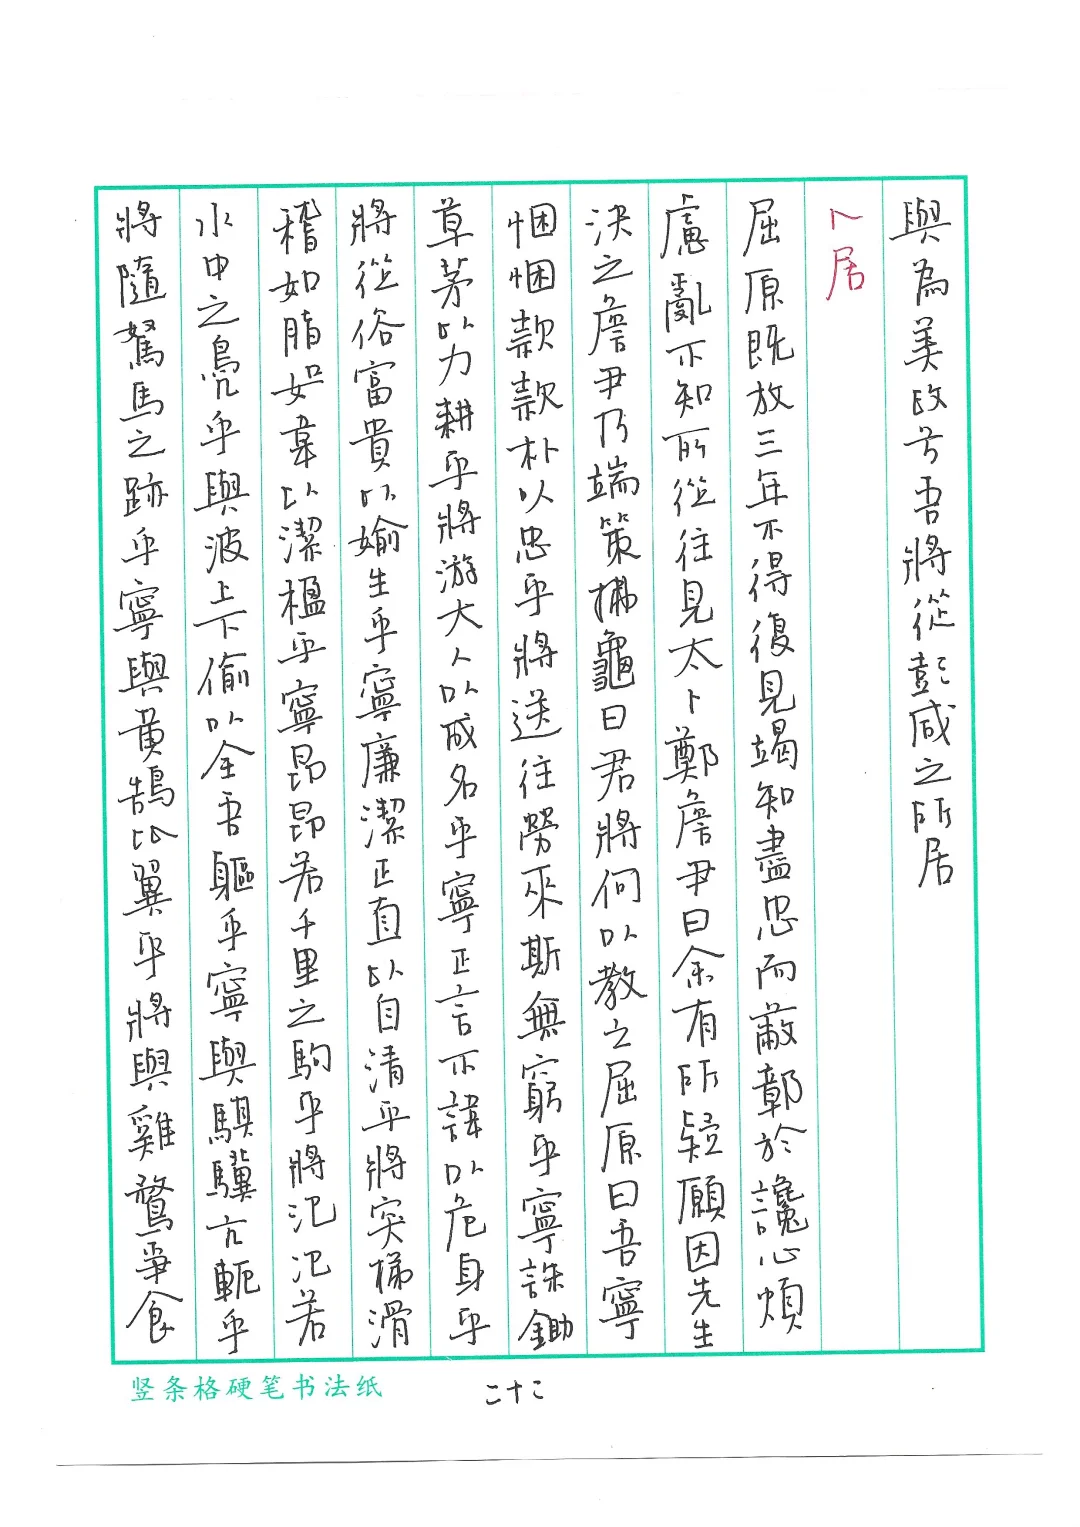 與為美政兮吾將從彭咸之所居
卜居
屈原既放三年不得復見竭知盡忠而蔽鄣於讒心煩
慮亂不知所從往見太卜鄭詹尹曰余有所疑願因先生
決之詹尹乃端策拂龜曰君將何以教之屈原曰吾寧
悃悃款款朴以忠乎將送往勞來斯無窮乎寧誅鋤
草茅以力耕乎將游大人以成名乎寧正言不諱以危身乎
將從俗富貴以媮生乎寧廉潔正直以自清乎將突梯滑
稽如脂如韋以潔楹乎寧昂昂若千里之駒乎將氾氾若
水中之鳧乎與波上下偷以全吾軀乎寧與騏驥亢軛乎
將隨駑馬之跡乎寧與黃鵠比翼乎將與雞鶩爭食
竖条格硬笔书法纸
二十二